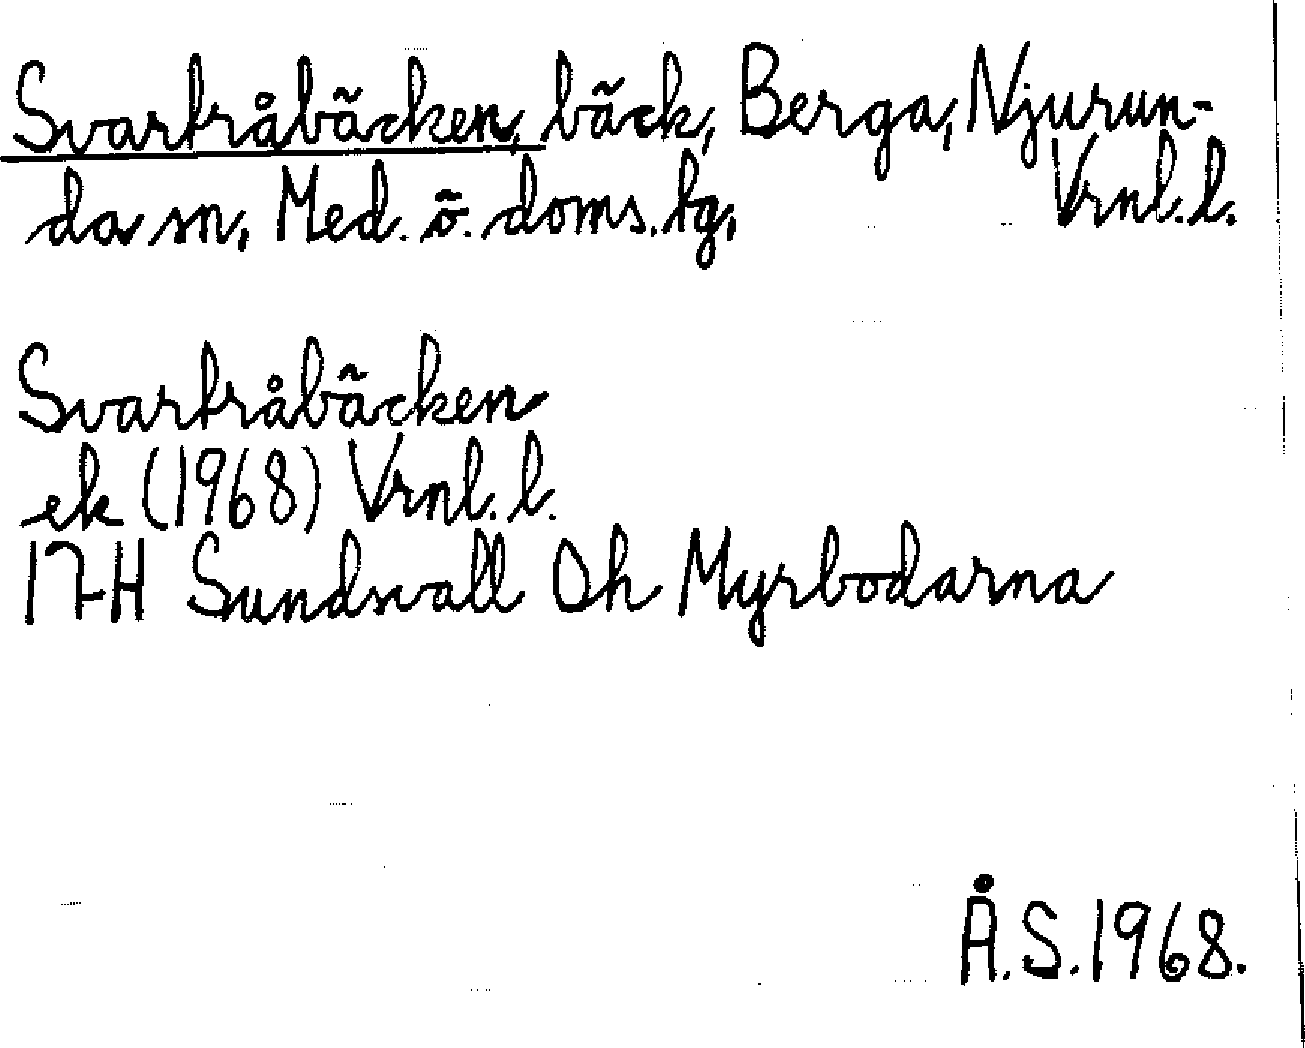 Svartråbäcken, bäck, Berga, Njurun-
da sn, Med. ö. doms. tg. Vrnl. l.
Svartråbäcken
ek (1968) Vrnl. l.
17H Sundsvall Oh Myrbodarna
Å.S. 1968.